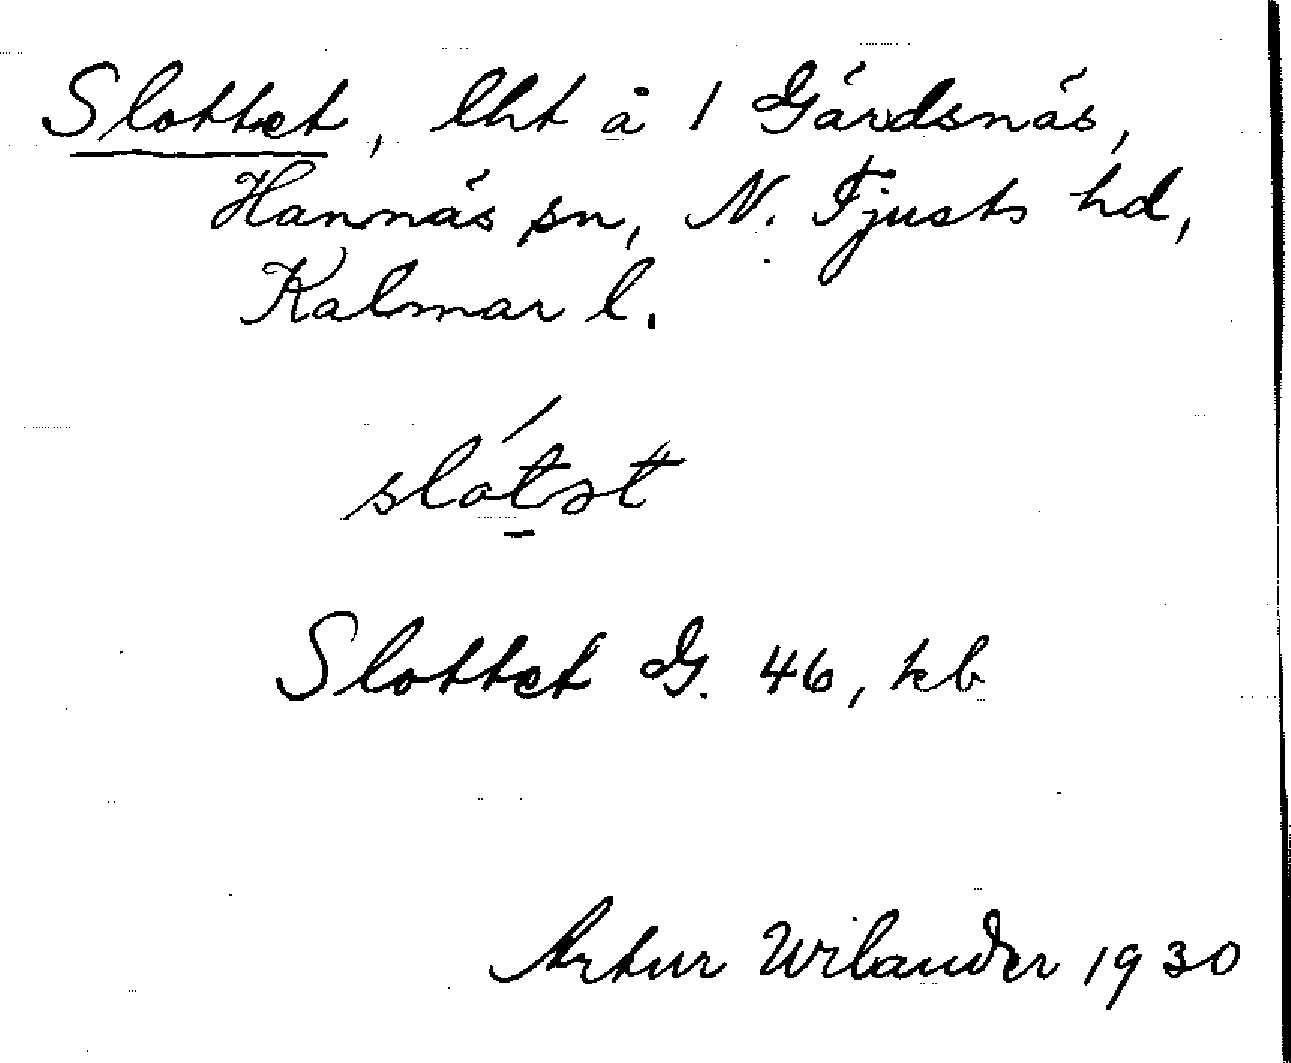 Slottet, lht å 1 Gärdsnäs,
Hannäs sn, N. Tjusts hd,
Kalmar l.
slótət
Slottet G. 46, kb
Artur Wilander 1930